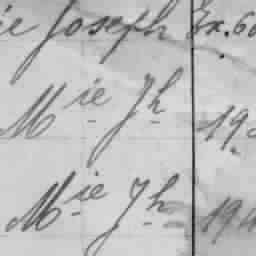 ie Joseph Ex.60
Mie Jh 19
Mie Jh 194